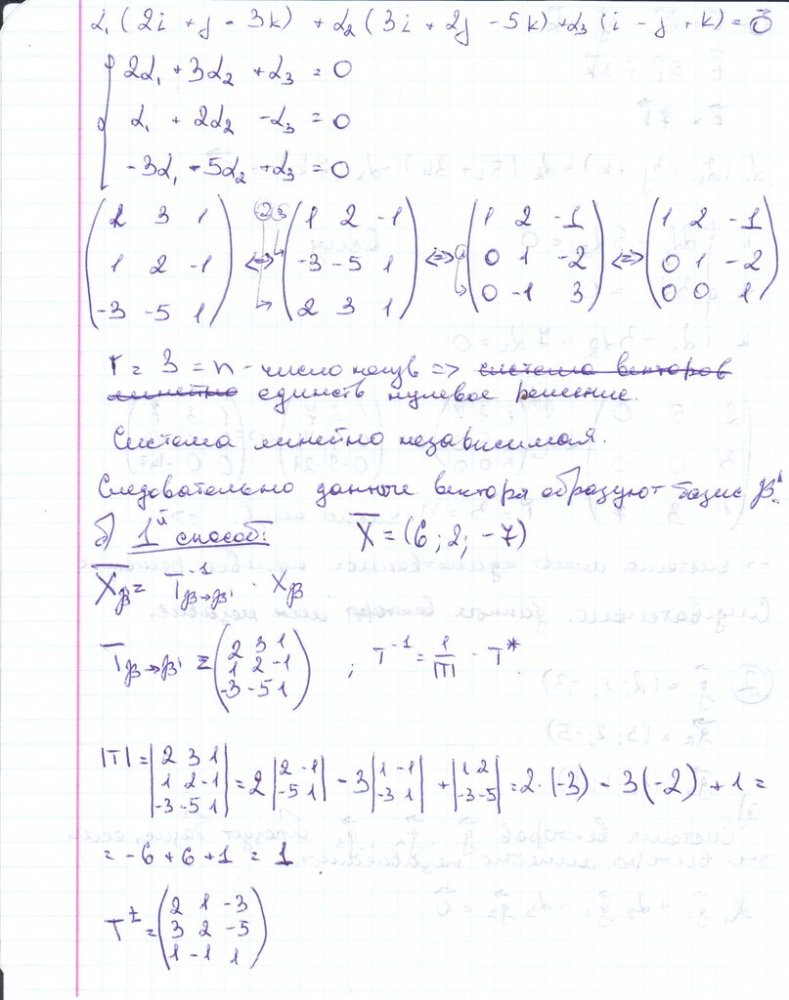 α₁(2i + j - 3k) + α₂(3i + 2j - 5k) + α₃(i - j + k) = 0⃗
2α₁ + 3α₂ + α₃ = 0
α₁ + 2α₂ - α₃ = 0
-3α₁ - 5α₂ + α₃ = 0
(2 3 1; 1 2 -1; -3 -5 1) <=> (1 2 -1; -3 -5 1; 2 3 1) <=> (1 2 -1; 0 1 -2; 0 -1 3) <=> (1 2 -1; 0 1 -2; 0 0 1)
r = 3 = n - число неизв => система векторов
линейно единств нулевое решение.
Система линейно независимая.
Следовательно данные вектора образуют базис β'.
б) 1й способ: X̄ = (6; 2; -7)
X̄β' = T⁻¹β→β' · Xβ
Tβ→β' = (2 3 1; 1 2 -1; -3 -5 1) ; T⁻¹ = 1/|T| · T*
|T| = |2 3 1; 1 2 -1; -3 -5 1| = 2 |2 -1; -5 1| - 3 |1 -1; -3 1| + |1 2; -3 -5| = 2·(-3) - 3(-2) + 1 =
= -6 + 6 + 1 = 1
Tᵗ = (2 1 -3; 3 2 -5; 1 -1 1)